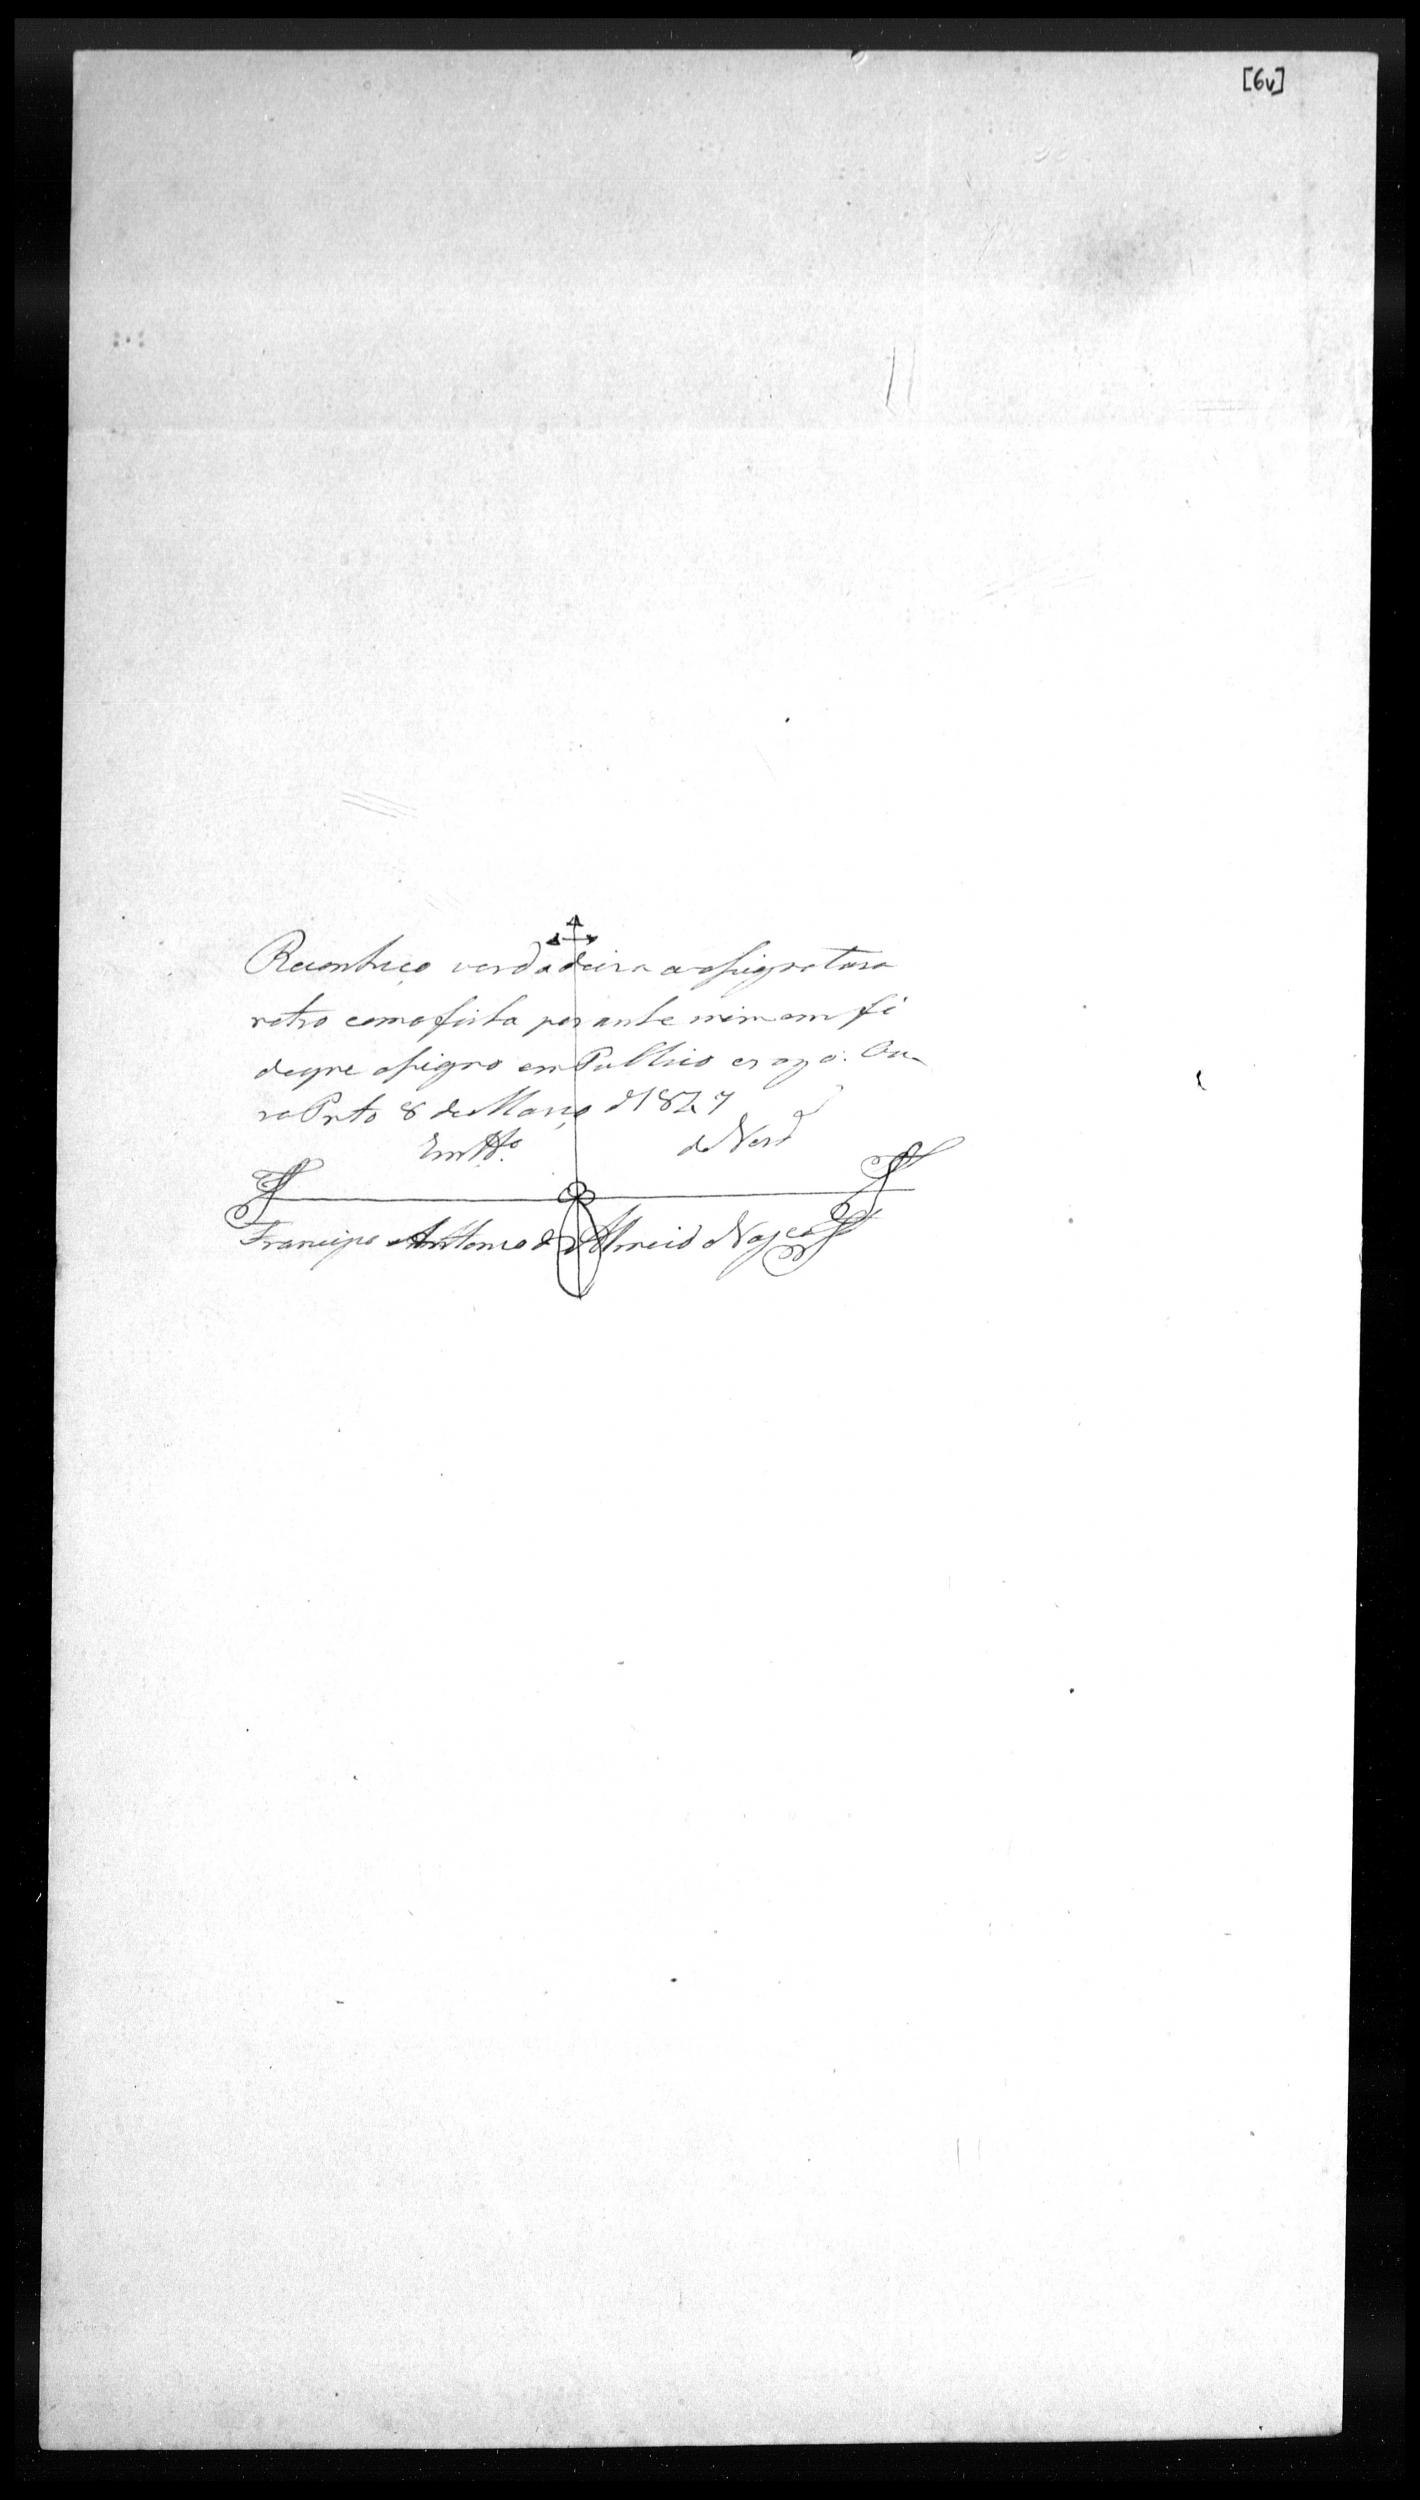 [6v]
Reconheço verdadeira a assignatura
retro como feita perante mim em fé
de que assigno em Publico e razo. Ou-
ro Preto 8 de Março d 1827
Em tto. de Verd
Francisco Antonio d Almeid